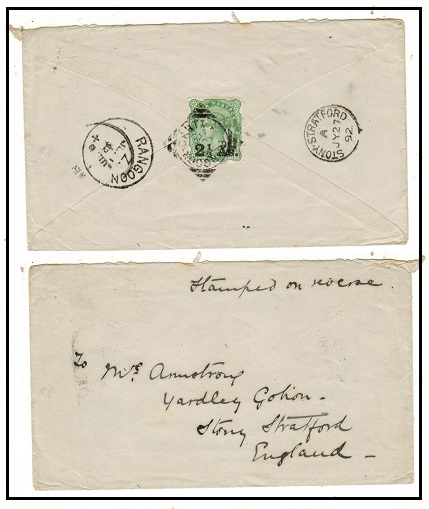 RANGOON
2½ As.
STONY-STRATFORD
A
JY 27
92
Stamped on reverse.
To
Mrs Armstrong
Yardley Gobion -
Stony Stratford
England -